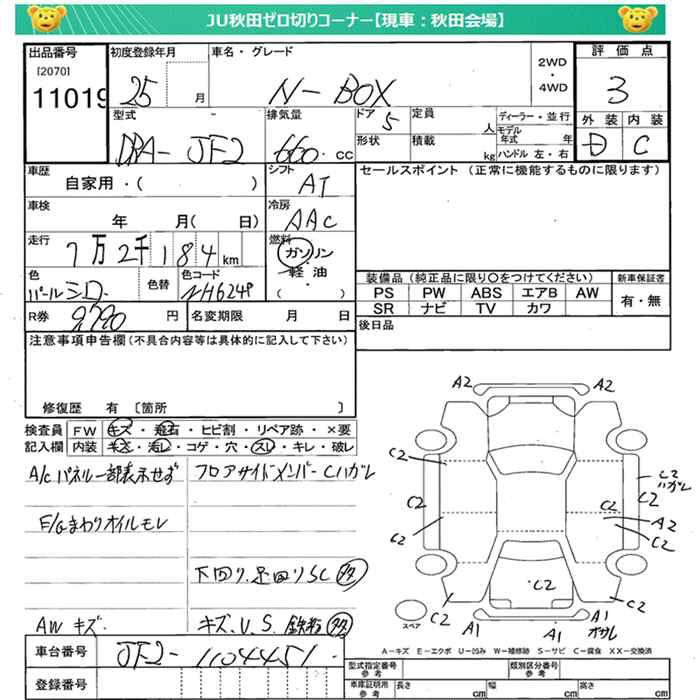 JU秋田ゼロ切りコーナー【現車：秋田会場】
出品番号
[2070]
11019
初度登録年月
25 月
車名・グレード
N-BOX
2WD
・
4WD
評価点
3
外装 内装
D C
型式
DBA-JF2
排気量
660 CC
ドア
5
定員
人
ディーラー・並行
モデル年式 年
形状
積載
kg
ハンドル 左・右
車歴
自家用・( )
シフト
AT
セールスポイント (正常に機能するものに限ります)
車検
年 月( 日)
冷房
AAC
走行
7万2千184km
燃料
ガソリン
軽油
( ・ )
色
パールシロ
色替
色コード
NH624P
装備品(純正品に限り〇をつけてください)
新車保証書
PS PW ABS エアB AW
SR ナビ TV カワ
有・無
R券
9,790 円
名変期限 月 日
後日品
注意事項申告欄(不具合内容等は具体的に記入して下さい)
修復歴 有 〔箇所 〕
検査員 FW キズ・飛石・ヒビ割・リペア跡・×要
記入欄 内装 キズ・汚レ・コゲ・穴・スレ・キレ・破レ
A/Cパネル一部表示せず
フロアサイドメンバーCハガレ
E/Gまわりオイルモレ
下回り、足回りSC 多
AWキズ
キズ、U、S、鉄粉 多
A2 A2
C2
C2
C2
C2 ハガレ
C2
C2
A2
C2
C2
C2
C2
A1
A1
A1
スペア
A-キズ E-エクボ U-凹み W-補修跡 S-サビ C-腐食 XX-交換済
車台番号
JF2-1104451
登録番号
型式指定番号
参考
類別区分番号
参考
車庫証明用
参考
長さ cm
幅 cm
高さ cm